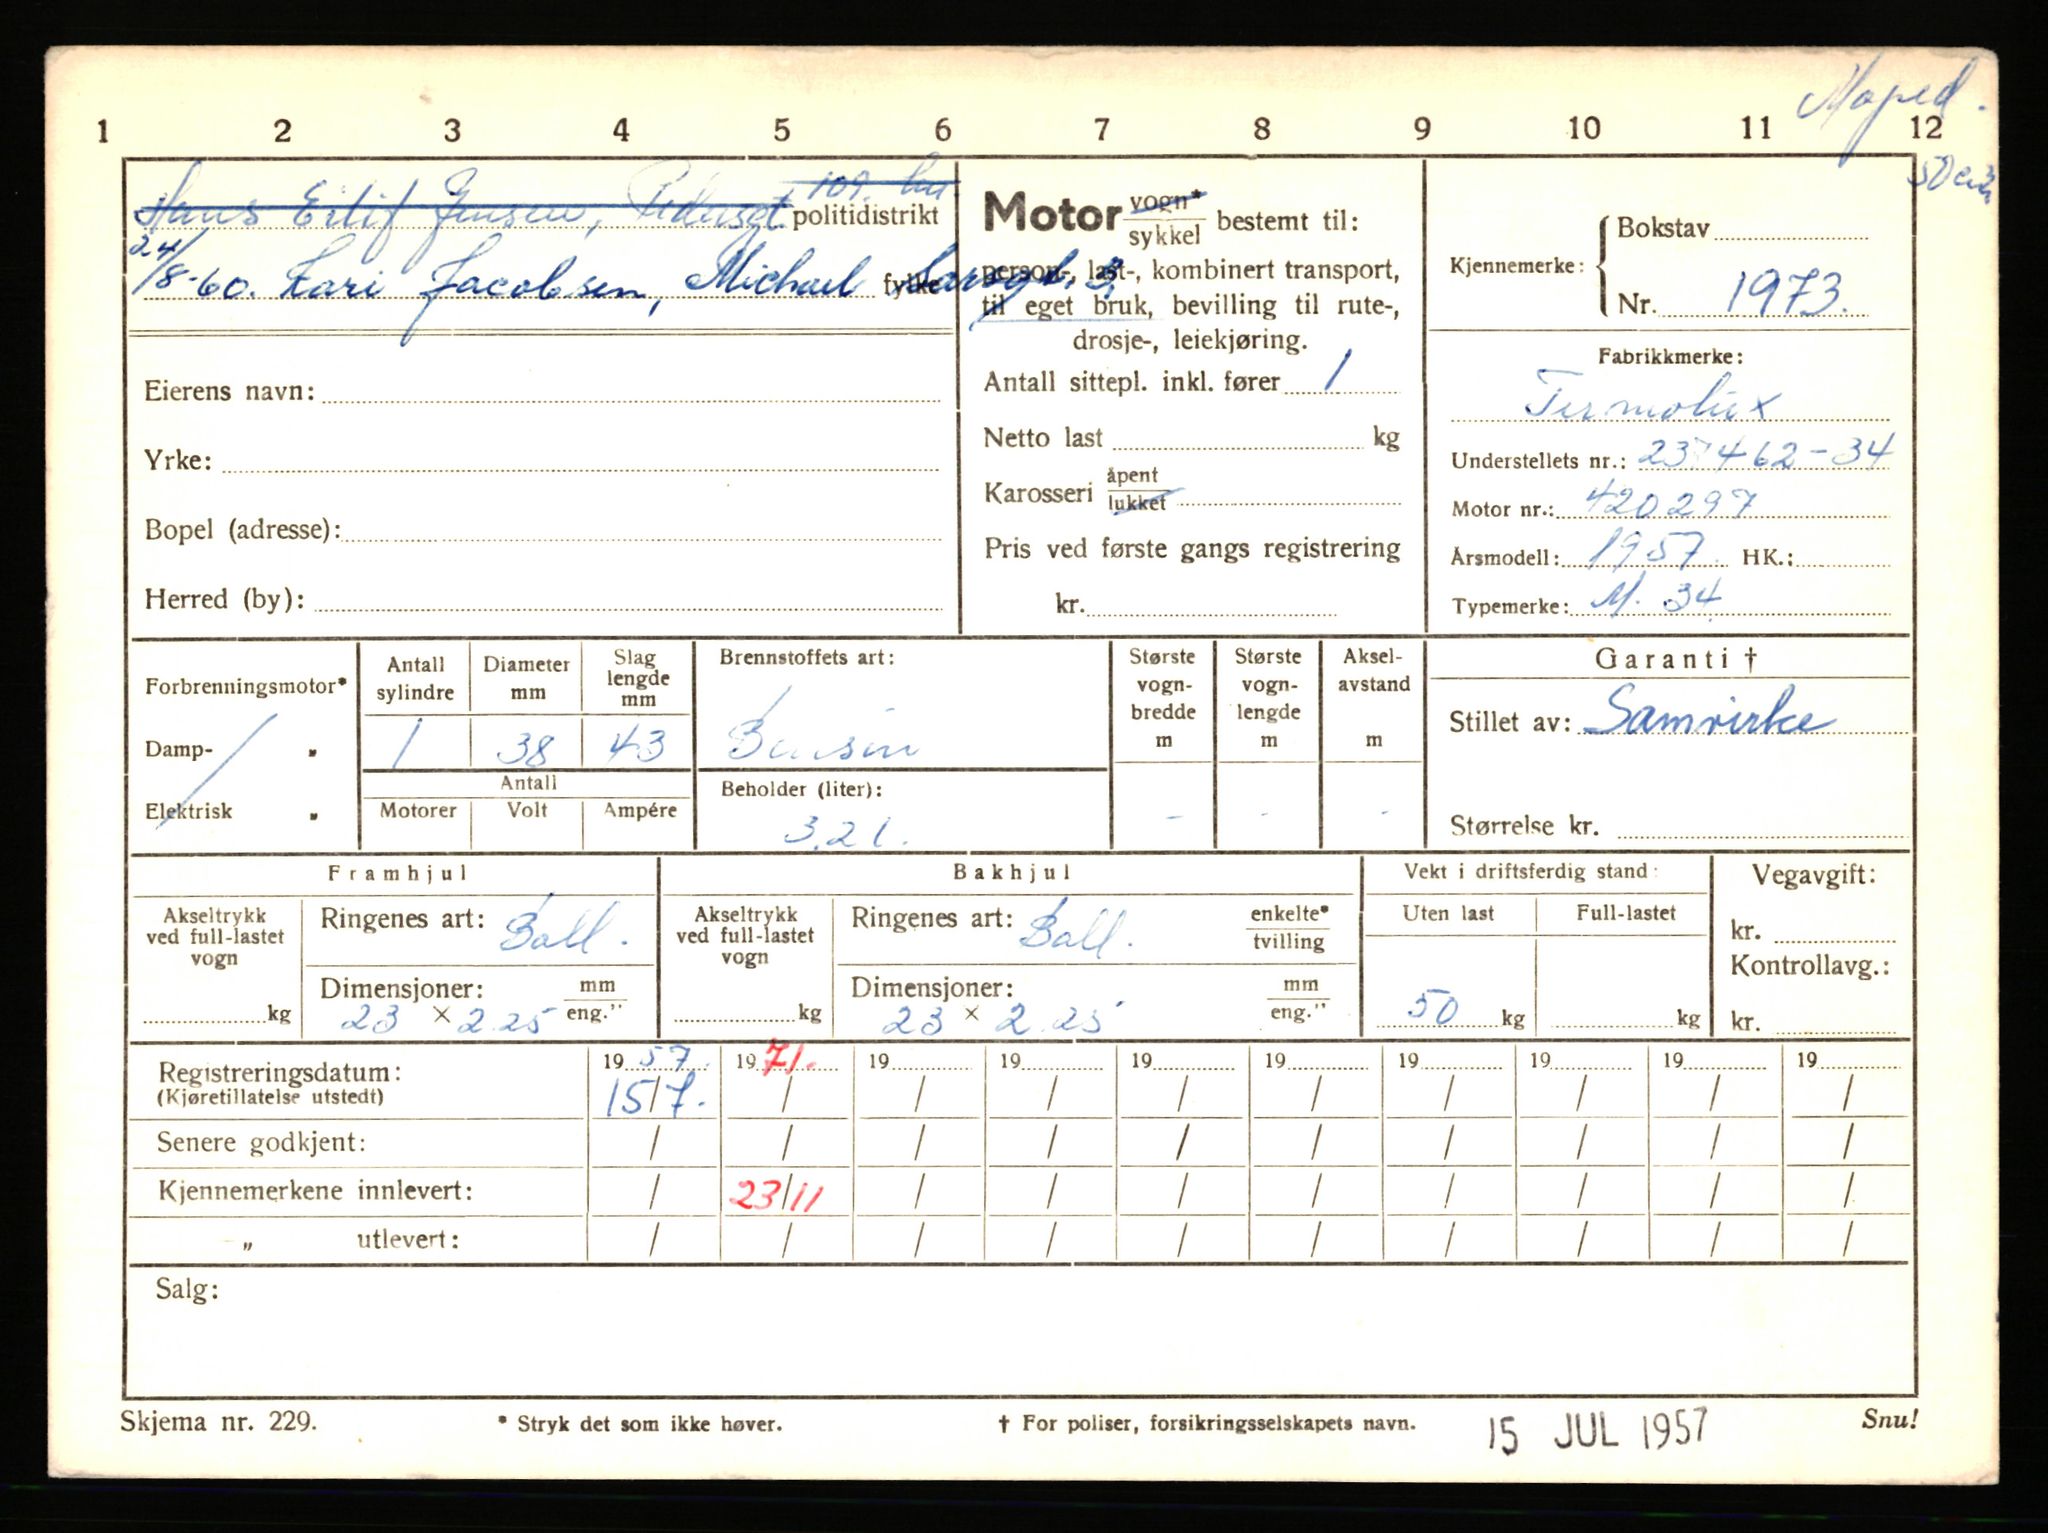 Moped.
1 2 3 4 5 6 7 8 9 10 11 12
50 cm3
109. hu
Hans Eilif Jensen, politidistrikt
24/8-60. Kari Jacobsen, Michael fylke
Eierens navn:
Yrke:
Bopel (adresse):
Herred (by):
Motor vogn* sykkel bestemt til:
person-, last-, kombinert transport,
til eget bruk, bevilling til rute-,
drosje-, leiekjøring.
Antall sittepl. inkl. fører 1
Netto last kg
Karosseri åpent lukket
Pris ved første gangs registrering
kr.
Kjennemerke: Bokstav
Nr. 1973.
Fabrikkmerke:
Termolux
Understellets nr.: 237462-34
Motor nr.: 420297
Årsmodell: 1957. HK.:
Typemerke: M. 34
Forbrenningsmotor*
Damp- „
Elektrisk „
Antall sylindre
Diameter mm
Slag lengde mm
1 38 43
Antall
Motorer Volt Ampére
Brennstoffets art:
Bensin
Beholder (liter):
3,2 l.
Største vogn- bredde m
Største vogn- lengde m
Aksel- avstand m
- - -
Garanti †
Stillet av: Samvirke
Størrelse kr.
Framhjul
Akseltrykk ved full-lastet vogn
kg
Ringenes art: Ball.
Dimensjoner: mm eng."
23 × 2.25
Bakhjul
Akseltrykk ved full-lastet vogn
kg
Ringenes art: Ball. enkelte* tvilling
Dimensjoner: mm eng."
23 × 2.25
Vekt i driftsferdig stand:
Uten last Full-lastet
50 kg kg
Vegavgift:
kr.
Kontrollavg.:
kr.
Registreringsdatum: 19 57. 19 71. 19 19 19 19 19 19 19 19
(Kjøretillatelse utstedt) 15/7. / / / / / / / / /
Senere godkjent: / / / / / / / / / /
Kjennemerkene innlevert: / 23/11 / / / / / / / /
„ utlevert: / / / / / / / / / /
Salg:
Skjema nr. 229. * Stryk det som ikke høver. † For poliser, forsikringsselskapets navn. 15 JUL 1957 Snu!